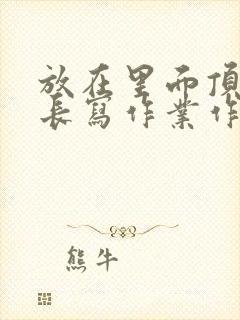 放在里而頂
長寫作業作
熊牛